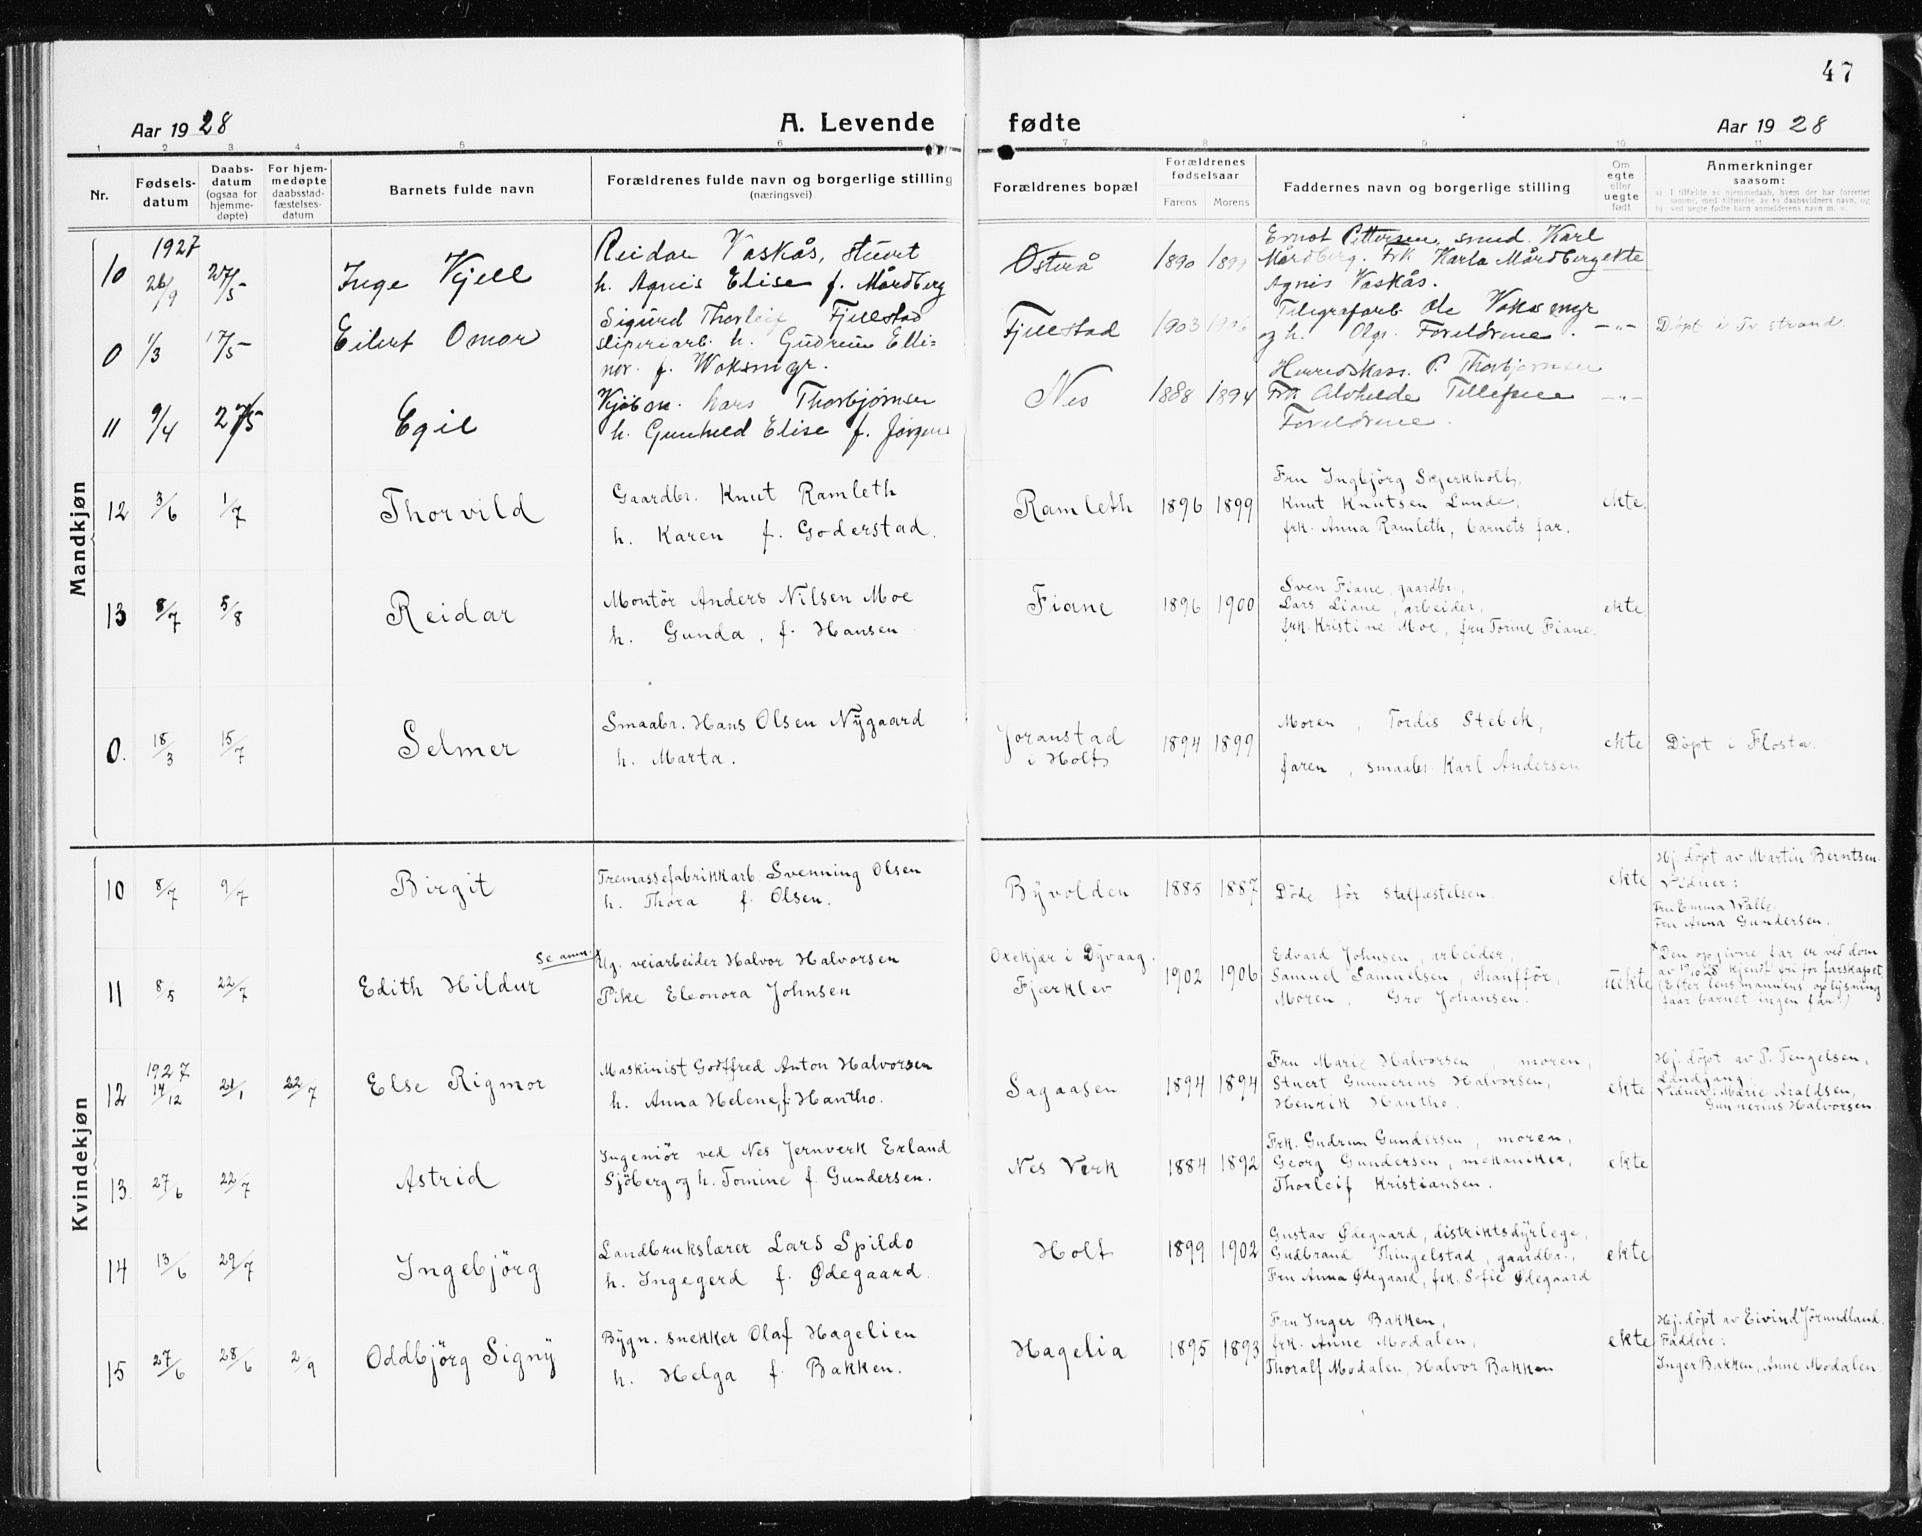 47
Aar 1928
A. Levende fødte
Aar 1928
1 2 3 4 5 6 7 8 9 10 11
Nr.
Fødsels-
datum
Daabs-
datum
(ogsaa for
hjemme-
døpte)
For hjem-
medøpte
daabsstad-
fæstelses-
datum
Barnets fulde navn
Forældrenes fulde navn og borgerlige stilling
(næringsvei)
Forældrenes bopæl
Forældrenes
fødselsaar
Farens Morens
Faddernes navn og borgerlige stilling
Om
egte
eller
uegte
født
Anmerkninger
saasom:
a) I tilfælde av hjemmedaab, hvem der har forrettet
samme, med tilføielse av to daabsvidners navn, og
b) ved uegte fødte barn anmelderens navn m. v.
Mandkjøn
10 1927 26/9 27/5 Inge Kjell
Reidar Vaskås, stuert
h. Agnis Elise f. Mårdberg
Osterå 1890
Ernst Pettersen, smed. Karl
Mårdberg. Frk Karla Mårdberg
Agnis Vaskås.
ekte
0 1/3 17/5 Eilert Omar
Sigurd Thorleif Fjellestad
sliperiarb. h. Gudrun Elli=
nor f. Woksmyr.
Fjellestad 1903
Telegrafarb. Ole Voksmyr
og h. Olga. Foreldrene.
—"— Døpt i Tv.strand
11 9/4 27/5 Egil
Kjøbm. Lars Thorbjørnsen
h. Gunhild Elise f. Jørgens
Nes 1888 1894
Herredskass. P. Thorbjørnsen
Frk Alvhilde Tellefsen
Foreldrene.
—"—
12 3/6 1/7 Thorvild
Gaardbr. Knut Ramleth
h. Karen f. Goderstad.
Ramleth 1896 1899
Fru Ingbjørg Skjerkholt,
Knut Knutsen Lunde,
frk. Anna Ramleth, barnets far.
ekte.
13 8/7 5/8 Reidar
Montör Anders Nilsen Moe
h. Gunda, f. Hansen.
Fiane 1896 1900
Sven Fiane, gaardbr.,
Lars Liane, arbeider,
frk. Kristine Moe, fru Tomine Fiane.
ekte,
0. 18/3 15/7 Selmer
Smaabr. Hans Olsen Nygaard
h. Marta.
Joranstad
i Holt 1894 1899
Moren, Tordis Stebek,
faren, smaabr. Karl Andersen
ekte Döpt i Flosta.
Kvindekjøn
10 8/7 9/7 Birgit
Tremassefabrikkarb. Svenning Olsen
h. Thora f. Olsen.
Byvolden 1885 1887
Döde för stadfæstelsen.
ekte
Hj. döpt av Martin Berntsen.
Vidner:
Fru Emma Walle.
Fru Anna Gundersen.
11 8/5 22/7 Edith Hildur
Se anm. x
Ug. veiarbeider Halvor Halvorsen
Pike Eleonora Johnsen
Oxekjær i Dyvaag.
Fjærklev 1902 1906
Edvard Johnsen, arbeider,
Samuel Samuelsen, chaufför,
Moren, Gro Johansen.
uekte
x Den opgivne far er ved dom
av 19/10 28 kjendt fri for farskapet
(Efter lensmannens oplysning
faar barnet ingen far.)
12 1927 17/12 21/1 22/7 Else Rigmor
Maskinist Godtfred Anton Halvorsen
h. Anna Helene, f. Hantho.
Sagaasen 1894 1894
Fru Marie Halvorsen moren,
Stuert Gunnerius Halvorsen,
Henrik Hantho.
ekte
Hj. döpt av P. Tengelsen,
Landgang.
Vidner: Marie Araldsen,
Gunnerius Halvorsen.
13. 27/6 22/7 Astrid
Ingeniör ved Nes Jernverk Erland
Sjöberg og h. Tomine f. Gundersen.
Nes Verk 1884 1892
Frk. Gudrun Gundersen, moren,
Georg Gundersen, mekaniker,
Thorleif Kristiansen.
ekte
14 13/6 29/7 Ingebjörg
Landbrukslærer Lars Spildo
h. Ingegerd f. Ødegaard.
Holt 1899 1902
Gustav Ødegaard, distriktsdyrlege,
Gudbrand Thingelstad, gaardbr.,
Fru Anna Ødegaard, frk. Sofie Ødegaard
ekte
15 27/6 28/6 2/9 Oddbjörg Signy
Bygn. snekker Olaf Hagelien
h. Helga f. Bakken.
Hagelia 1895 1893
Fru Inger Bakken,
frk. Anne Modalen,
Thoralf Modalen, Halvor Bakken
ekte
Hj. döpt av Eivind Jörundland.
Faddere:
Inger Bakken, Anne Modalen